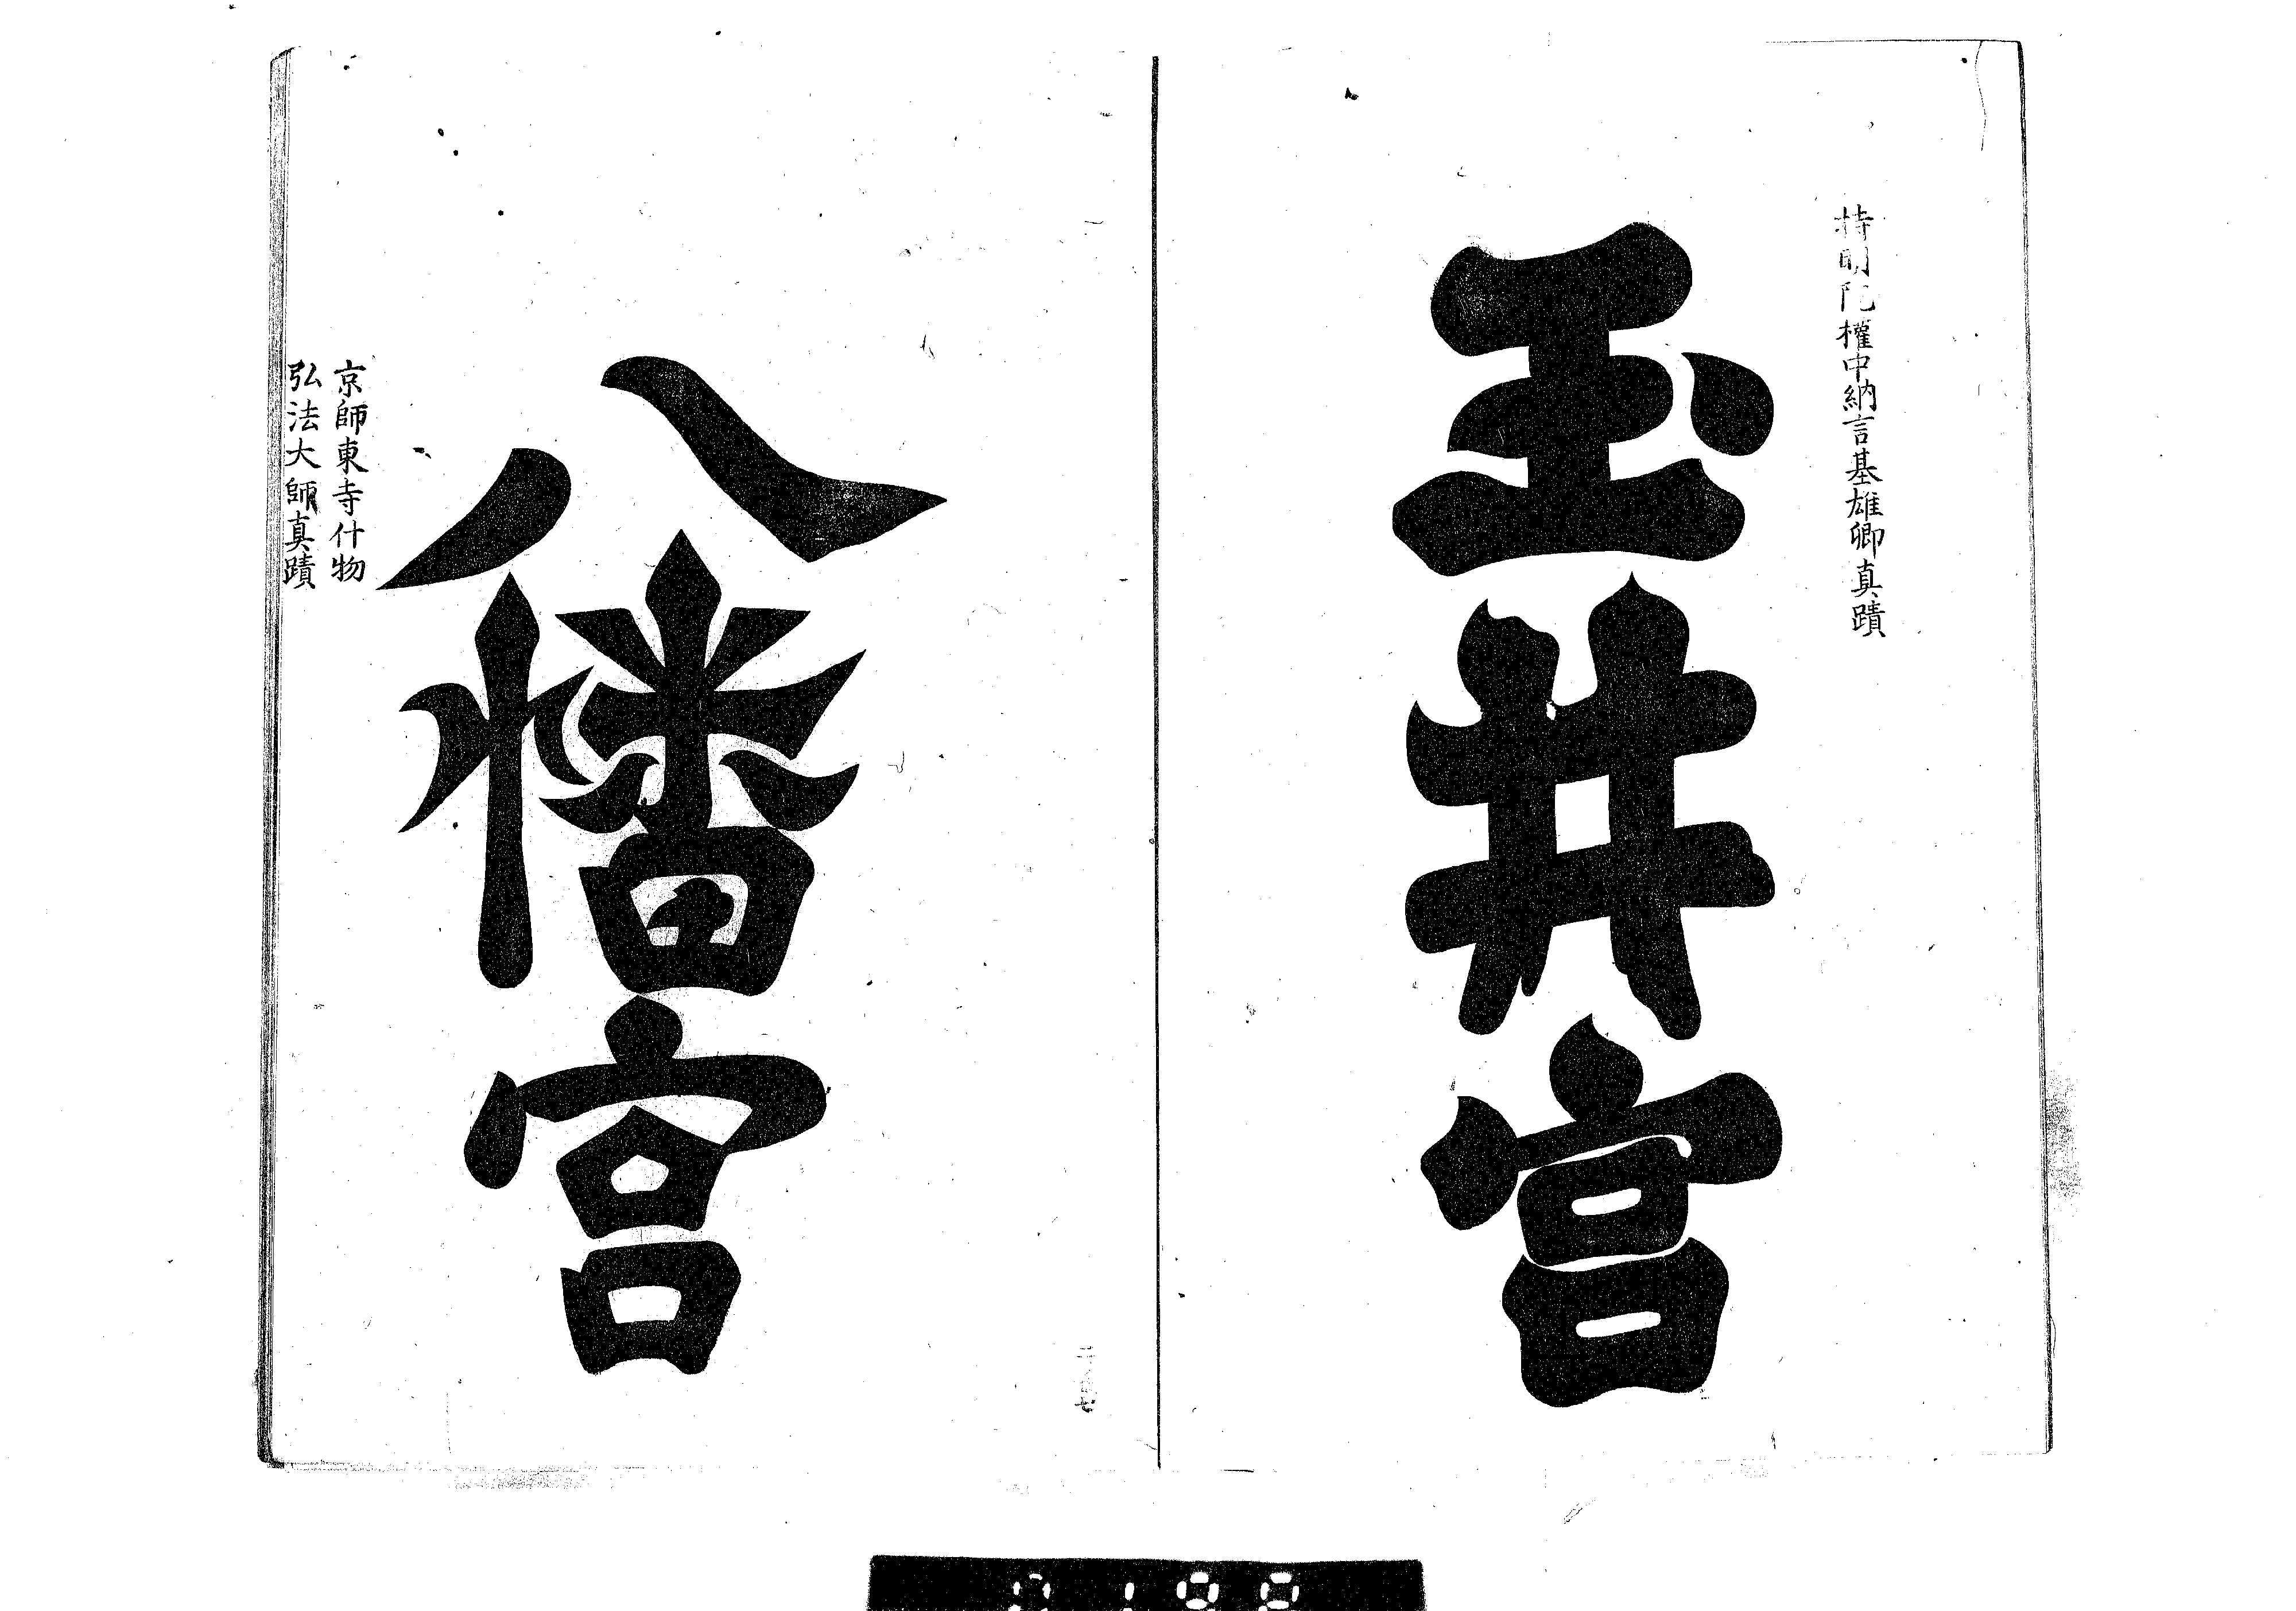 持明院權中納言基雄卿真蹟
玉井宮
八幡宮
京師東寺什物
弘法大師真蹟